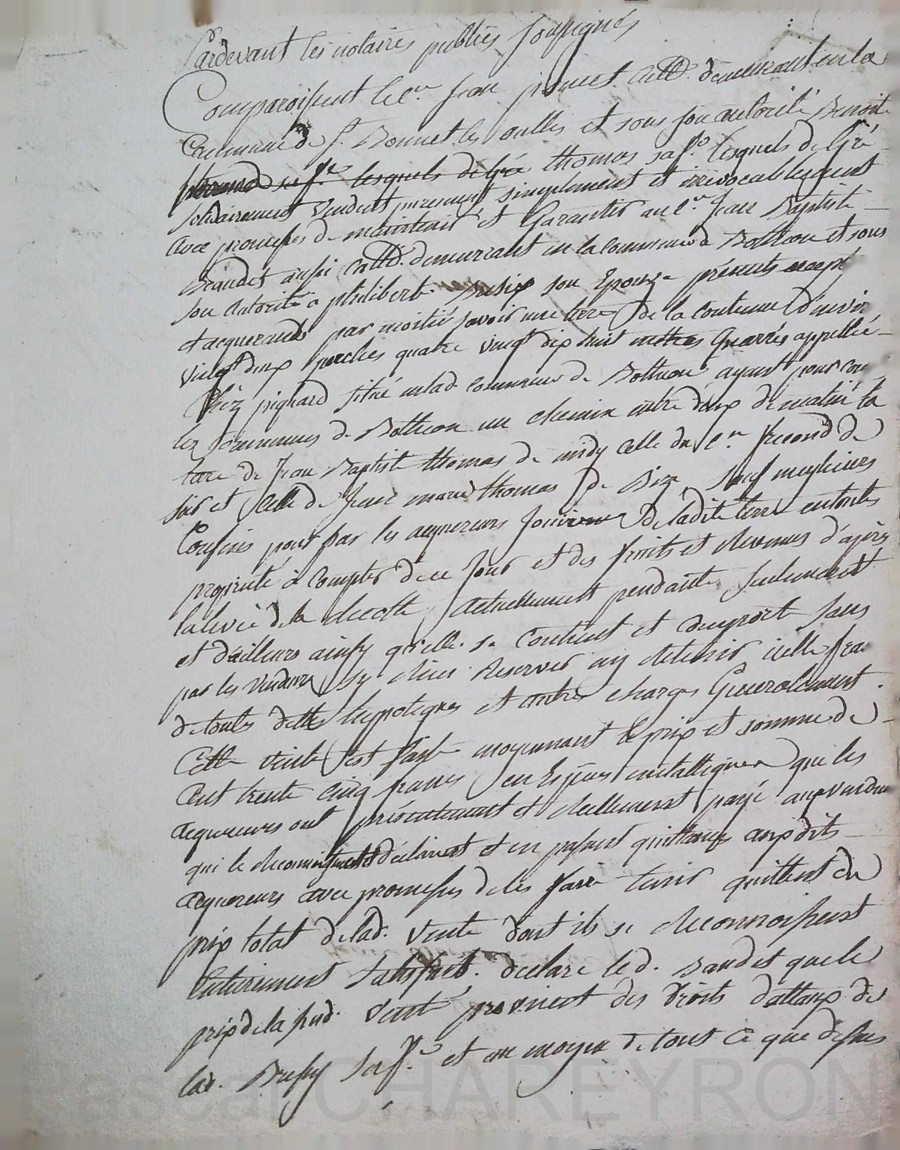 Pardevant les notaires publics soussignés
Comparoissent le Cen jean cultr demeurant en la
Commune de St Bonnet les oulles et sous son autorité Benoite
lesquels de Gré thomas sa fe lesquels de Gré
solidairement vendent purement simplement et irrévocablement
avec promesses de maintenir et Garantir au Cen Jean Baptiste
Baudet aussi cultr demeurant en la commune de Botheon et sous
son autorité a philiberte Bussy son Epouse présents
et acquerants par moitié savoir une terre de la contenue d'environ
vingt deux perches quatre vingt dix huit mettres quarrés appellée
Chez pignard située en lad commune de Botheon ayant pour con
les communes de Botheon un chemin entre deux de matin la
terre de Jean Baptiste thomas de midy celle du Cen second de
soir et celle de Jean marie thomas de bize sauf meilleures
Confins pour par les acquereurs jouir de ladite terre en toute
propriété à compter de ce jour et des fruits et revenus d'après
la levée de la récolte actuellement pendante seulement
et d'ailleurs ainsy qu'elle se Contient et comporte sans
par les vendeurs s'y rien réserver ny retenir icelle franche
de toutes dettes hypoteques et autres charges Généralement.
Cette vente est faite moyennant le prix et somme de
cent trente cinq francs en Espèces metalliques que les
acquereurs ont présentement et réellement payé aux vendeurs
qui le reconnoissent déclarent et en passent quittance auxdits
acquereurs avec promesses de les faire tenir quittent du
prix total de lad. vente dont ils se reconnoissent
Entierement satisfaits. déclare led. Baudet que le
prix de la sud. vente provient des droits dottaux de
lad. Bussy sa fe et au moyen de tout ce que dessus
CHAREYRON